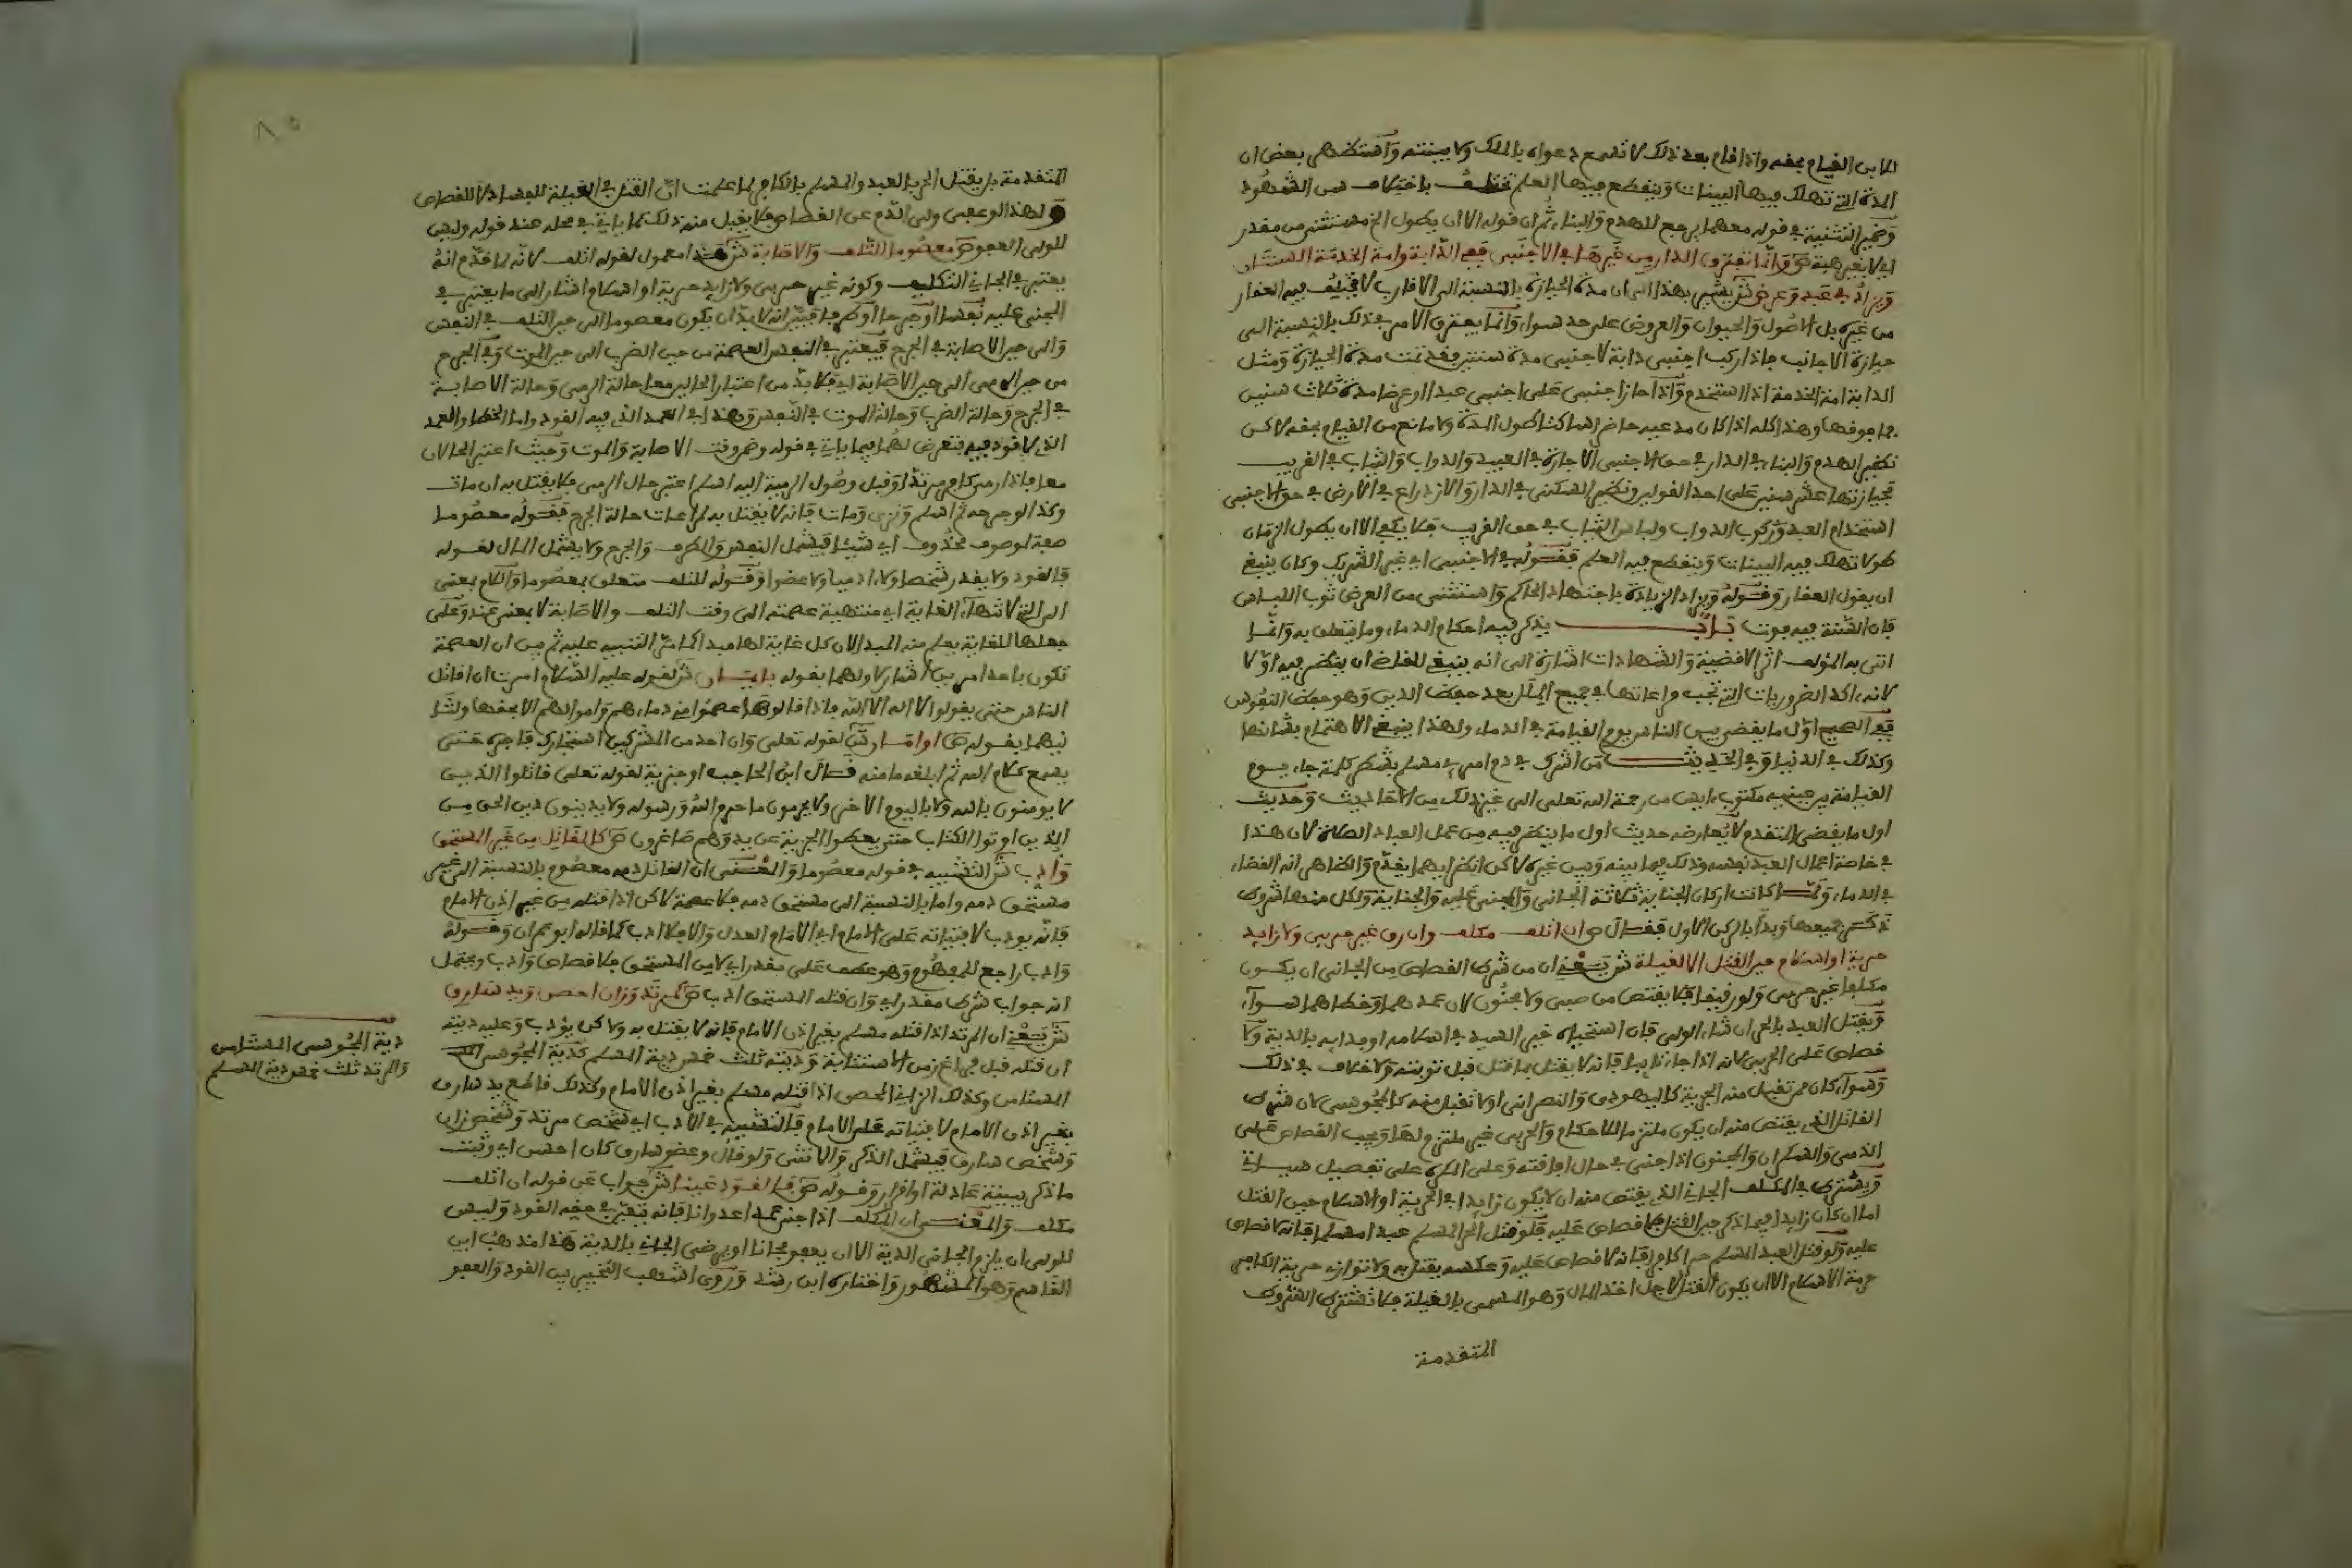 للابن القيام بحقه واذا قام بعد ذلك لا تسمع دعواه بالملك ولا بينته واستظهر بعض ان
المدة التي تهلك فيها البينات وينقطع فيها العلم تختلف باختلاف سن الشهود
وضمير التثنية في قوله معهما يرجع للهدم والبناء ثم ان قوله الا ان يطول الخ مستثنى من مقدر
اي لا بغير هبة ص وانما تفترق الدار من غيرها في الاجنبي ففي الدابة وامة الخدمة السنتان
ويزاد في عبد وعرض ش يشير بهذا الى ان مدة الحيازة بالنسبة الى الاقارب لا تختلف فيه العقار
من غيره بل الاصول والحيوان والعروض على حد سواء وانما يفترق الامر في ذلك بالنسبة الى
حيازة الاجانب فاذا ركب اجنبي دابة لاجنبي مدة سنتين فقد تمت مدة الحيازة ومثل
الدابة امة الخدمة اذا استخدم واذا حاز اجنبي على اجنبي عبدا او عرضا مدة ثلاث سنين
فما فوقها وهذا كله اذا كان مدعيه حاضرا ساكتا طول المدة ولا مانع من القيام بحقه لاكن
نظير الهدم والبناء في الدار في حق الاجنبي الاجارة في العبيد والدواب والثياب في القريب
فحيازتها عشر سنين على احد القولين ونظير السكنى في الدار والازدراع في الارض في حق الاجنبي
استخدام العبد وركوب الدواب ولباس الثياب في حق القريب فلا يكفي الا ان يطول الزمان
طولا تهلك فيه البينات وينقطع فيه العلم فقوله في الاجنبي اي غير الشريك وكان ينبغي
ان يقول العقار وقوله ويزاد الزيادة باجتهاد الحاكم واستثنى من العرض ثوب اللباس
فان السنة فيه فوت باب يذكر فيه احكام الدماء وما يتعلق به وانما
اتى به المؤلف اثر الاقضية والشهادات اشارة الى انه ينبغي للقاضي ان ينظر فيه اولا
لانه ءاكد الضروريات التي تجب مراعاتها في جميع الملل بعد حفظ الدين وهو حفظ النفوس
ففي الصحيح اول ما يقضى بين الناس يوم القيامة في الدماء ولهذا ينبغي الاهتمام بشانها
وكذلك في الدنيا وفي الحديث من اشرك في دم امرء مسلم بشطر كلمة جاء يوم
القيامة بين عينيه مكتوب ءايس من رحمة الله تعالى الى غير ذلك من الاحاديث وحديث
اول ما يقضى المتقدم لا يعارضه حديث اول ما ينظر فيه من عمل العبد الصلاة لان هذا
في خاصة اعمال العبد نفسه وذلك فيما بينه وبين غيره لاكن انظر ايهما يقدم والظاهر انه القضاء
في الدماء ولما كانت اركان الجناية ثلاثة الجاني والمجني عليه والجناية ولكل منها شروط
ذكر جميعها وبدا بالركن الاول فقال ص ان اتلف مكلف وان رق غير حربي ولا زايد
حرية او اسلام حين القتل الا لغيلة ش يعني ان من شرط القصاص من الجاني ان يكون
مكلفا غير حربي ولو رقيقا فلا يقتص من صبي ولا مجنون لان عمدهما وخطاهما سواء
ويقتل العبد بالحر ان شاء الولي فان استحياه خير السيد في اسلامه او فدايه بالدية ولا
قصاص على الحربي لانه اذا جاء تايبا فانه لا يقتل بما قتل قبل توبته ولا خلاف في ذلك
وسواء كان ممن تقبل منه الجزية كاليهودي والنصراني او لا تقبل منه كالمجوسي لان شرط
القاتل الذي يقتص منه ان يكون ملتزما للاحكام والحربي غير ملتزم لها ويجب القصاص على
الذمي والسكران والمجنون اذا جنى في حال افاقته وعلى المكره على تفصيل سياتي
ويشترط في المكلف الجاني الذي يقتص منه ان لا يكون زايدا في الحرية او الاسلام حين القتل
اما ان كان زايدا فيما ذكر حين القتل فلا قصاص عليه فلو قتل الحر المسلم عبدا مسلما فانه لا قصاص
عليه ولو قتل العبد المسلم حرا كافرا فانه لا قصاص عليه وعكسه يقتل به ولا توازيه حرية الكافر
حرمة الاسلام الا ان يكون القتل لاجل اخذ المال وهو المسمى بالغيلة فلا تشترط الشروط
المتقدمة
٨٥
المتقدمة بل يقتل الحر بالعبد والمسلم بالكافر لما علمت ان القتل في الغيلة للفساد لا للقصاص
ولهذا لو عفى ولي الدم عن القصاص فلا يقبل منه ذلك كما ياتي في محله عند قوله وليس
للولي العفو ص معصوما للتلف والاصابة ش هذا معمول لقوله اتلف لانه لما قدم انه
يعتبر في الجاني التكليف وكونه غير حربي ولا زايد حرية او اسلام اشار الى ما يعتبر في
المجني عليه نفسا او جرحا او طرفا فبين انه لا بد ان يكون معصوما الى حين التلف في النفس
والى حين الاصابة في الجرح فيعتبر في النفس العصمة من حين الضرب الى حين الموت وفي الجرح
من حين الرمي الى حين الاصابة اي فلا بد من اعتبار الحالين معا حالة الرمي وحالة الاصابة
في الجرح وحالة الضرب وحالة الموت في النفس وهذا في العمد الذي فيه القود واما الخطا والعمد
الذي لا قود فيه فتعرض لهما فيما ياتي في قوله وضمن وقت الاصابة والموت وحيث اعتبر الحالان
معا فاذا رمى كافر مرتدا وقبل وصول الرمية اليه اسلم اعتبر حال الرمي فلا يقتل به ان مات
وكذا لو جرحه ثم اسلم ونزى ومات فانه لا يقتل به لمراعات حالة الجرح فقوله معصوما
صفة لموصوف محذوف اي شيئا فيشمل النفس والطرف والجرح ولا يشمل المال لقوله
فالقود ولا يقدر شخصا ولا ءادميا ولا عضوا وقوله للتلف متعلق بمعصوما واللام بمعنى
الى التي لانتهاء الغاية اي منتهية عصمته الى وقت التلف والاصابة لا بمعنى عند وعلى
جعلها للغاية يعلم منه المبدا لان كل غاية لها مبدا كما مر التنبيه عليه ثم بين ان العصمة
تكون باحد امرين اشار لاولهما بقوله بايمان ش لقوله عليه السلام امرت ان اقاتل
الناس حتى يقولوا لا اله الا الله فاذا قالوها عصموا مني دماءهم واموالهم الا بحقها ولثا
نيهما بقوله ص او امان ش لقوله تعالى وان احد من المشركين استجارك فاجره حتى
يسمع كلام الله ثم ابلغه مامنه قال ابن الحاجب او جزية لقوله تعالى قاتلوا الذين
لا يومنون بالله ولا باليوم الاخر ولا يحرمون ما حرم الله ورسوله ولا يدينون دين الحق من
الذين اوتوا الكتاب حتى يعطوا الجزية عن يد وهم صاغرون ص كالقاتل من غير المستحق
وادب ش التشبيه في قوله معصوما والمعنى ان القاتل دمه معصوم بالنسبة الى غير
مستحق دمه واما بالنسبة الى مستحق دمه فلا عصمة لاكن اذا قتله من غير اذن الامام
فانه يودب لافتياته على الامام اي الامام العدل والا فلا ادب كما قاله ابو عمران وقوله
وادب راجع للمفهوم وهو عطف على مقدر اي لا من المستحق فلا قصاص وادب ويحتمل
انه جواب شرط مقدر اي وان قتله المستحق ادب ص كمرتد وزان احصن ويد سارق
ش يعني ان المرتد اذا قتله مسلم بغير اذن الامام فانه لا يقتل به ولاكن يؤدب وعليه ديته
ان قتله قبل فراغ زمن الاستتابة وديته ثلث خمس دية المسلم كدية المجوسي
المستامن وكذلك الزاني المحصن اذا قتله مسلم بغير اذن الامام وكذلك قاطع يد سارق
بغير اذن الامام لافتياته على الامام فالتشبيه في الادب اي شخص مرتد وشخص زان
وشخص سارق فيشمل الذكر والانثى ولو قال وعضو سارق كان احسن اي وثبت
ما ذكر ببينة عادلة او اقرار وقوله ص فالقود عينا ش جواب عن قوله ان اتلف
مكلف والمعنى ان المكلف اذا جنى عمدا عدوانا فانه يتعين في حقه القود وليس
للولي ان يلزم الجاني الدية الا ان يعفو مجانا او يرضى الجاني بالدية هذا مذهب ابن
القاسم وهو المشهور واختاره ابن رشد وروى اشهب التخيير بين القود والعفو
دية المجوسي المستامن
والمرتد ثلث خمس دية المسلم